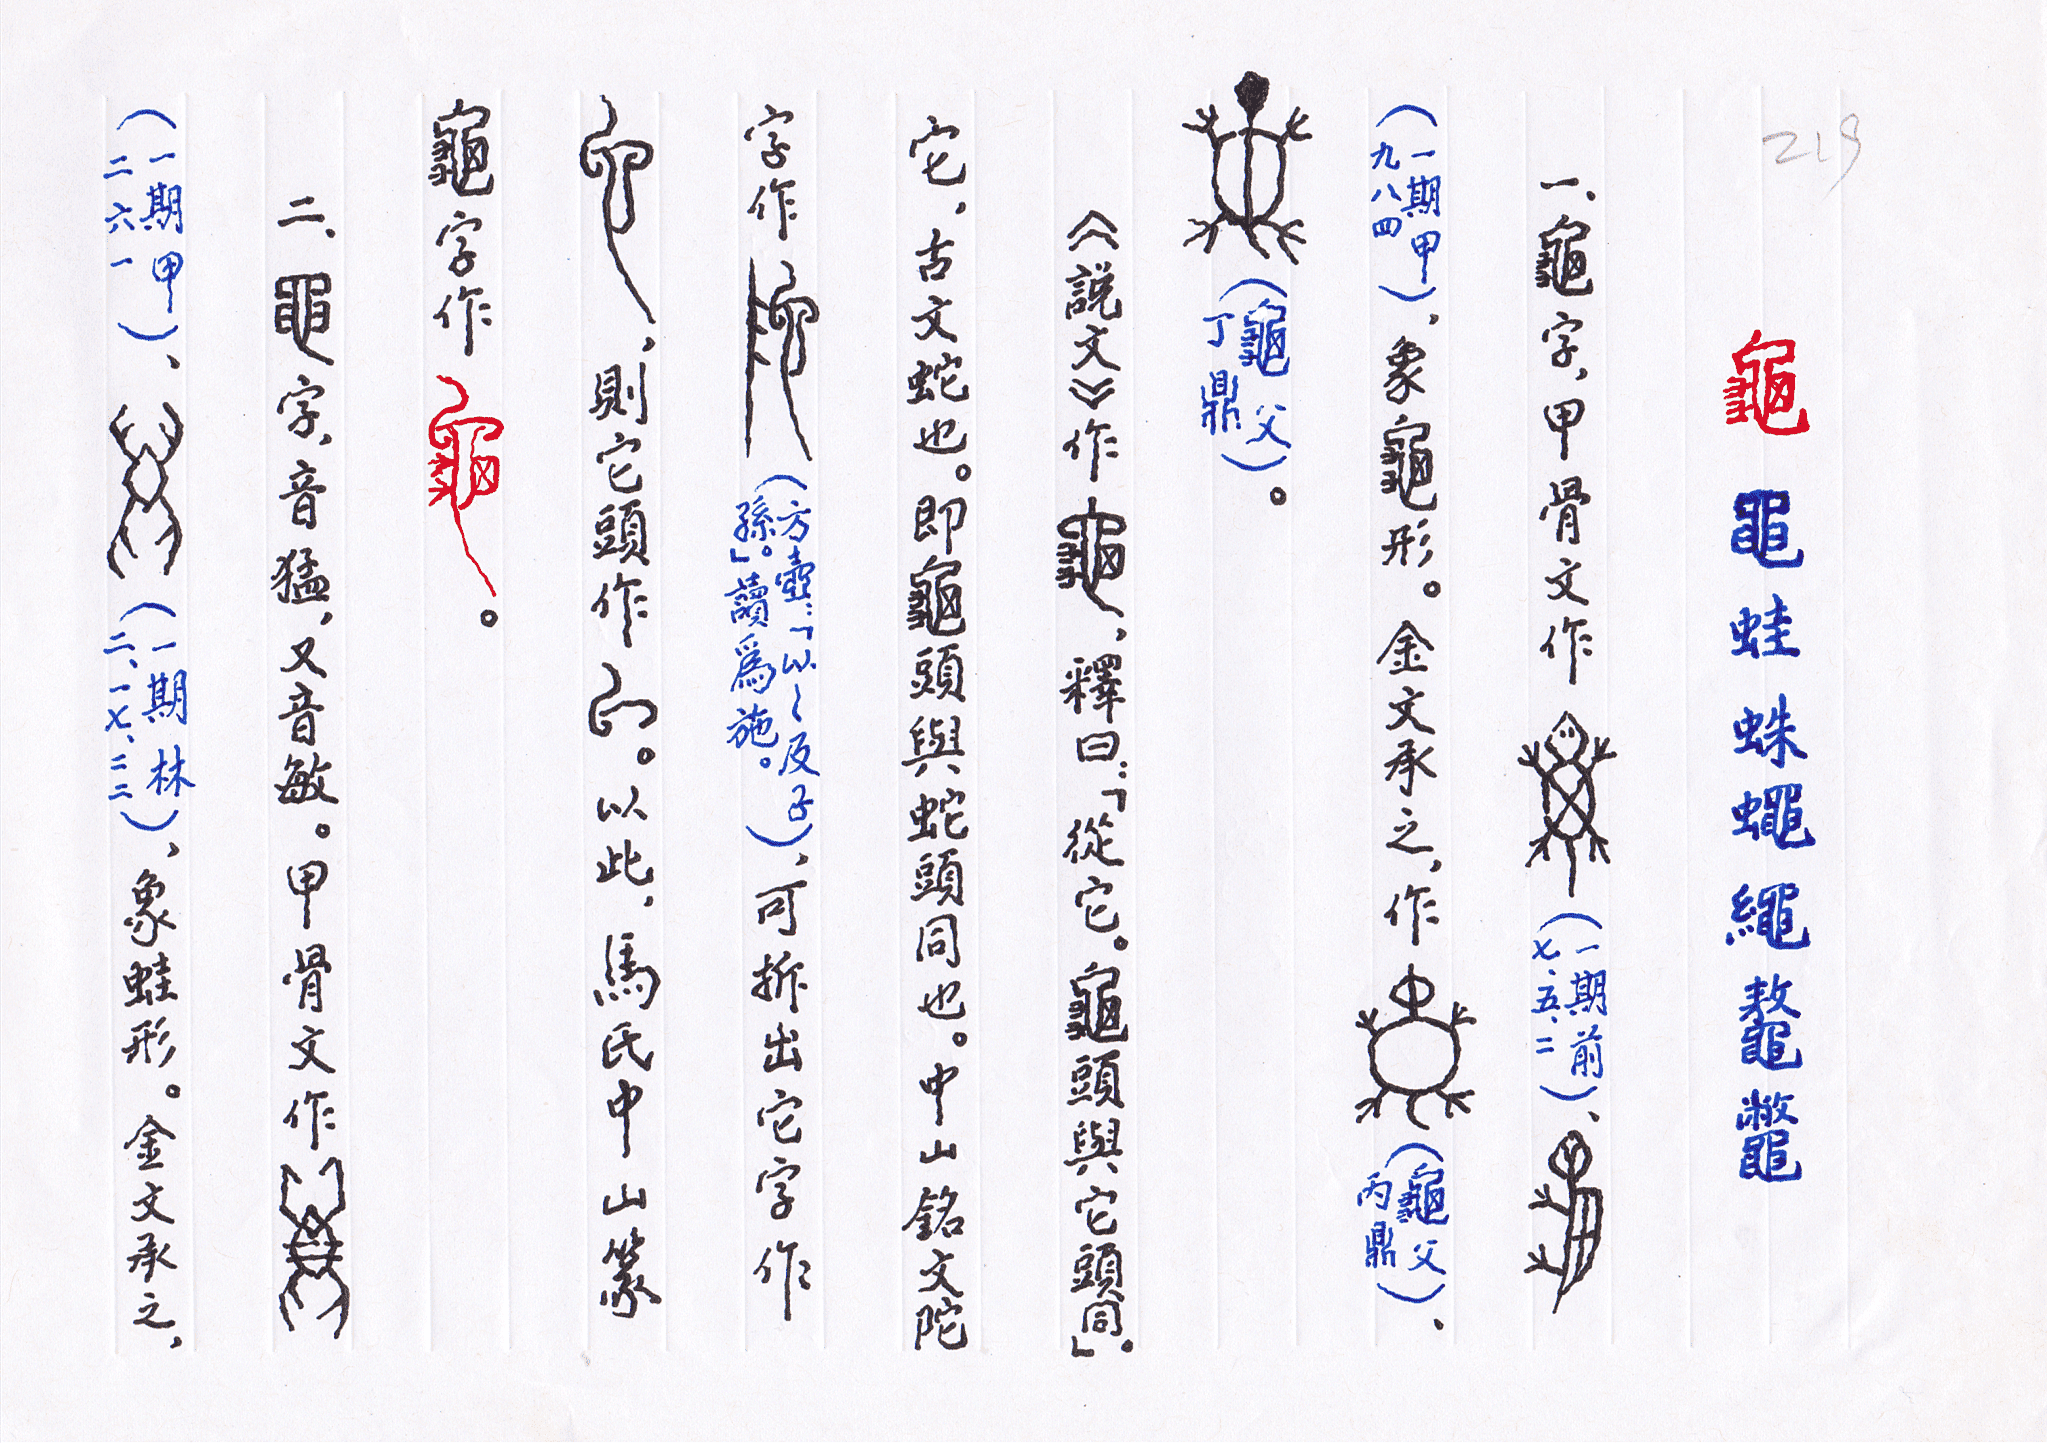 219
龜 黽 蛙 蛛 蠅 繩 鼇 鼈
一、龜字，甲骨文作（一期前七、五、二）、
（一期甲九八四），象龜形。金文承之，作（龜父丙鼎）、
（龜父丁鼎）。
《説文》作，釋曰：「從它。龜頭與它頭同」。
它，古文蛇也。即龜頭與蛇頭同也。中山銘文陀
字作（方壺：「以〜反子孫」。讀爲施。），可拆出它字作
，則它頭作。以此，馬氏中山篆
龜字作。
二、黽字，音猛，又音敏。甲骨文作
（一期甲二六一）、（一期林二、一七、二二），象蛙形。金文承之，